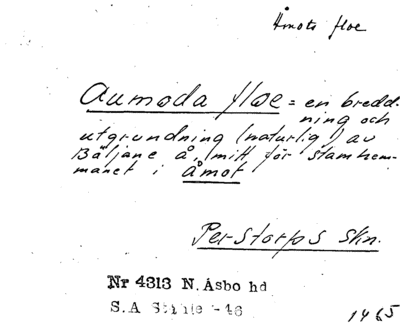 Åmots floe
Aumoda floe = en bredd-
ning och
utgrundning (naturlig!) av
Bäljane å, mitt för stamhem-
manet i Åmot
Perstorps skn.
Nr 4313 N. Åsbo hd
S.A -46
1465